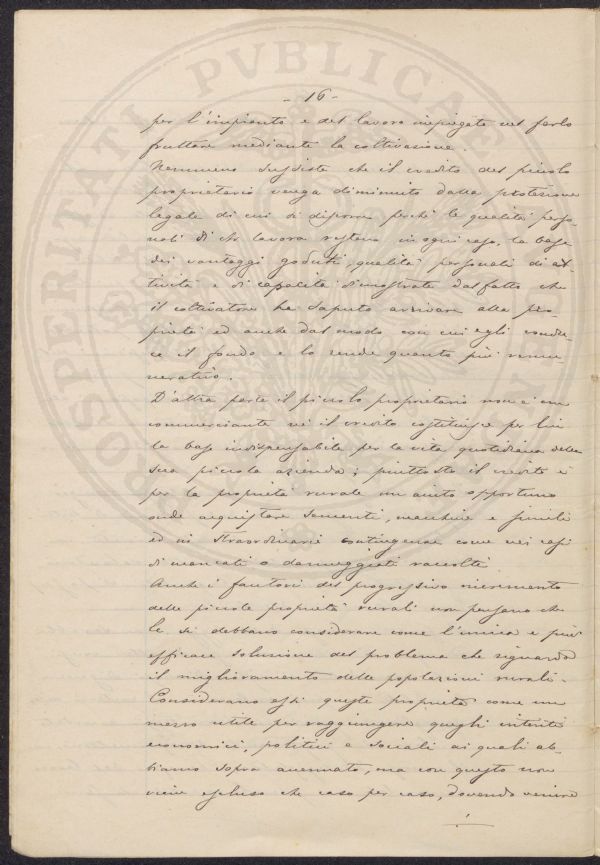 - 16 -
per l'impianto e del lavoro impiegato nel farlo
fruttare mediante la coltivazione.
Nemmeno sussiste che il credito del piccolo
proprietario venga diminuito dalla protezione
legale di cui si discorre perchè le qualità perso-
nali di chi lavora restano in ogni caso, la base
dei vantaggi goduti, qualità personali di at-
tività e di capacità dimostrate dal fatto che
il coltivatore ha saputo arrivare alla pro-
prietà ed anche dal modo con cui egli condu-
ce il fondo e lo rende quanto più remu
nerativo.
D'altra parte il piccolo proprietario non è un
commerciante nè il credito costituisce per lui
la base indispensabile per la vita quotidiana della
sua piccola azienda; piuttosto il credito è
per la proprietà rurale un aiuto opportuno
onde acquistare sementi, macchine e simili
ed in straordinarie contingenze come nei casi
di mancati o danneggiati raccolti.
Anche i fautori del progressivo incremento
delle piccole proprietà rurali non pensano che
le si debbano considerare come l'unica e più
efficace soluzione del problema che riguarda
il miglioramento delle popolazioni rurali.
Considerano essi queste proprietà come un
mezzo utile per raggiungere quegli intenti
economici, politici e sociali ai quali ab-
biamo sopra accennato, ma con questo non
viene escluso che caso per caso, dovendo venire
PROSPERITATI PVBLICAE